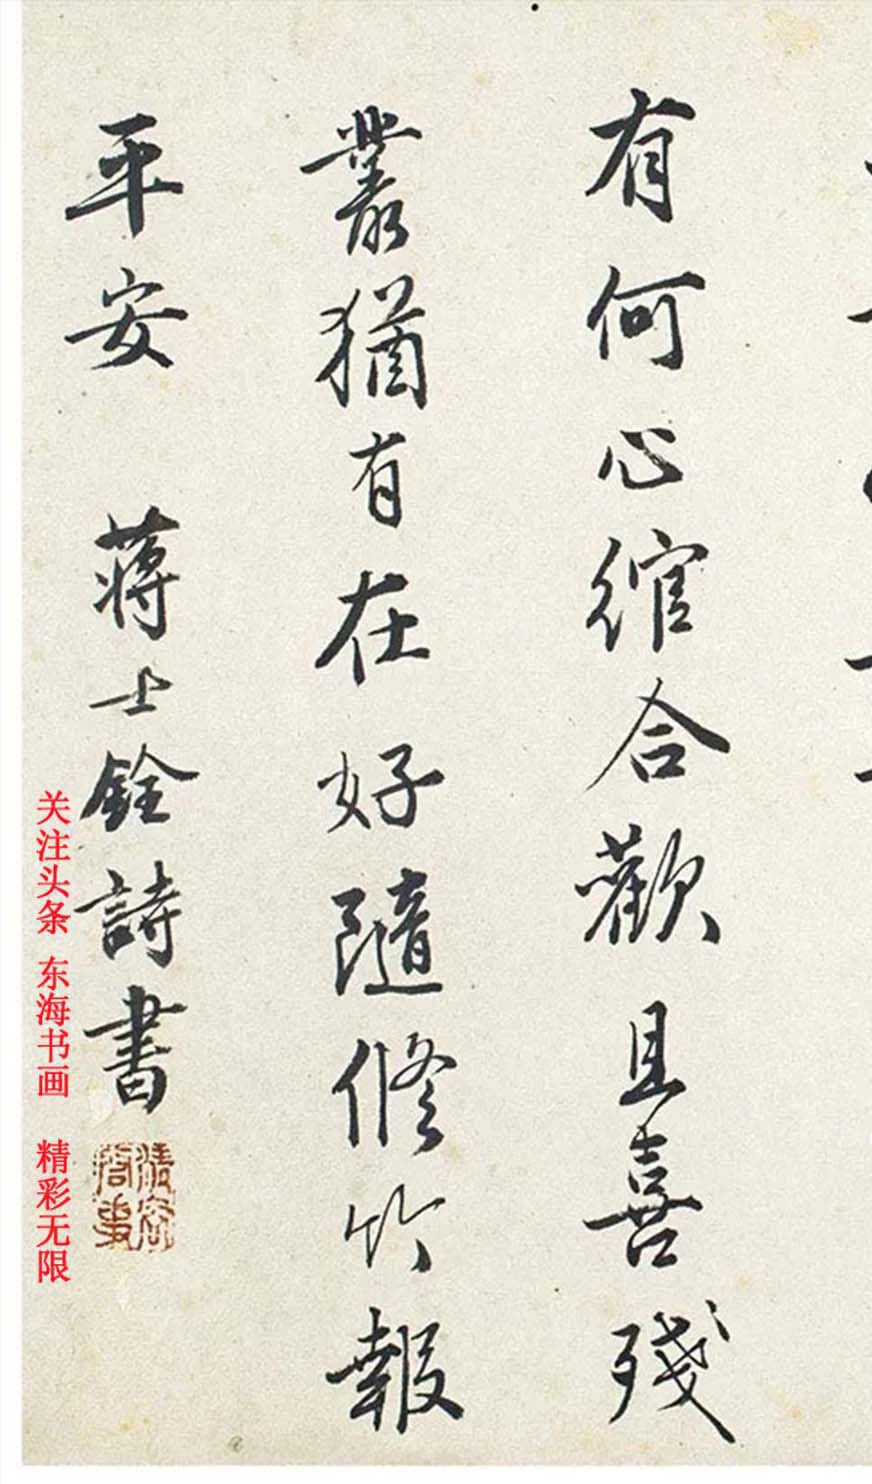 有何心綰合歡且喜殘
叢猶有在好隨修竹報
平安 蔣士銓詩書
关注头条 东海书画 精彩无限